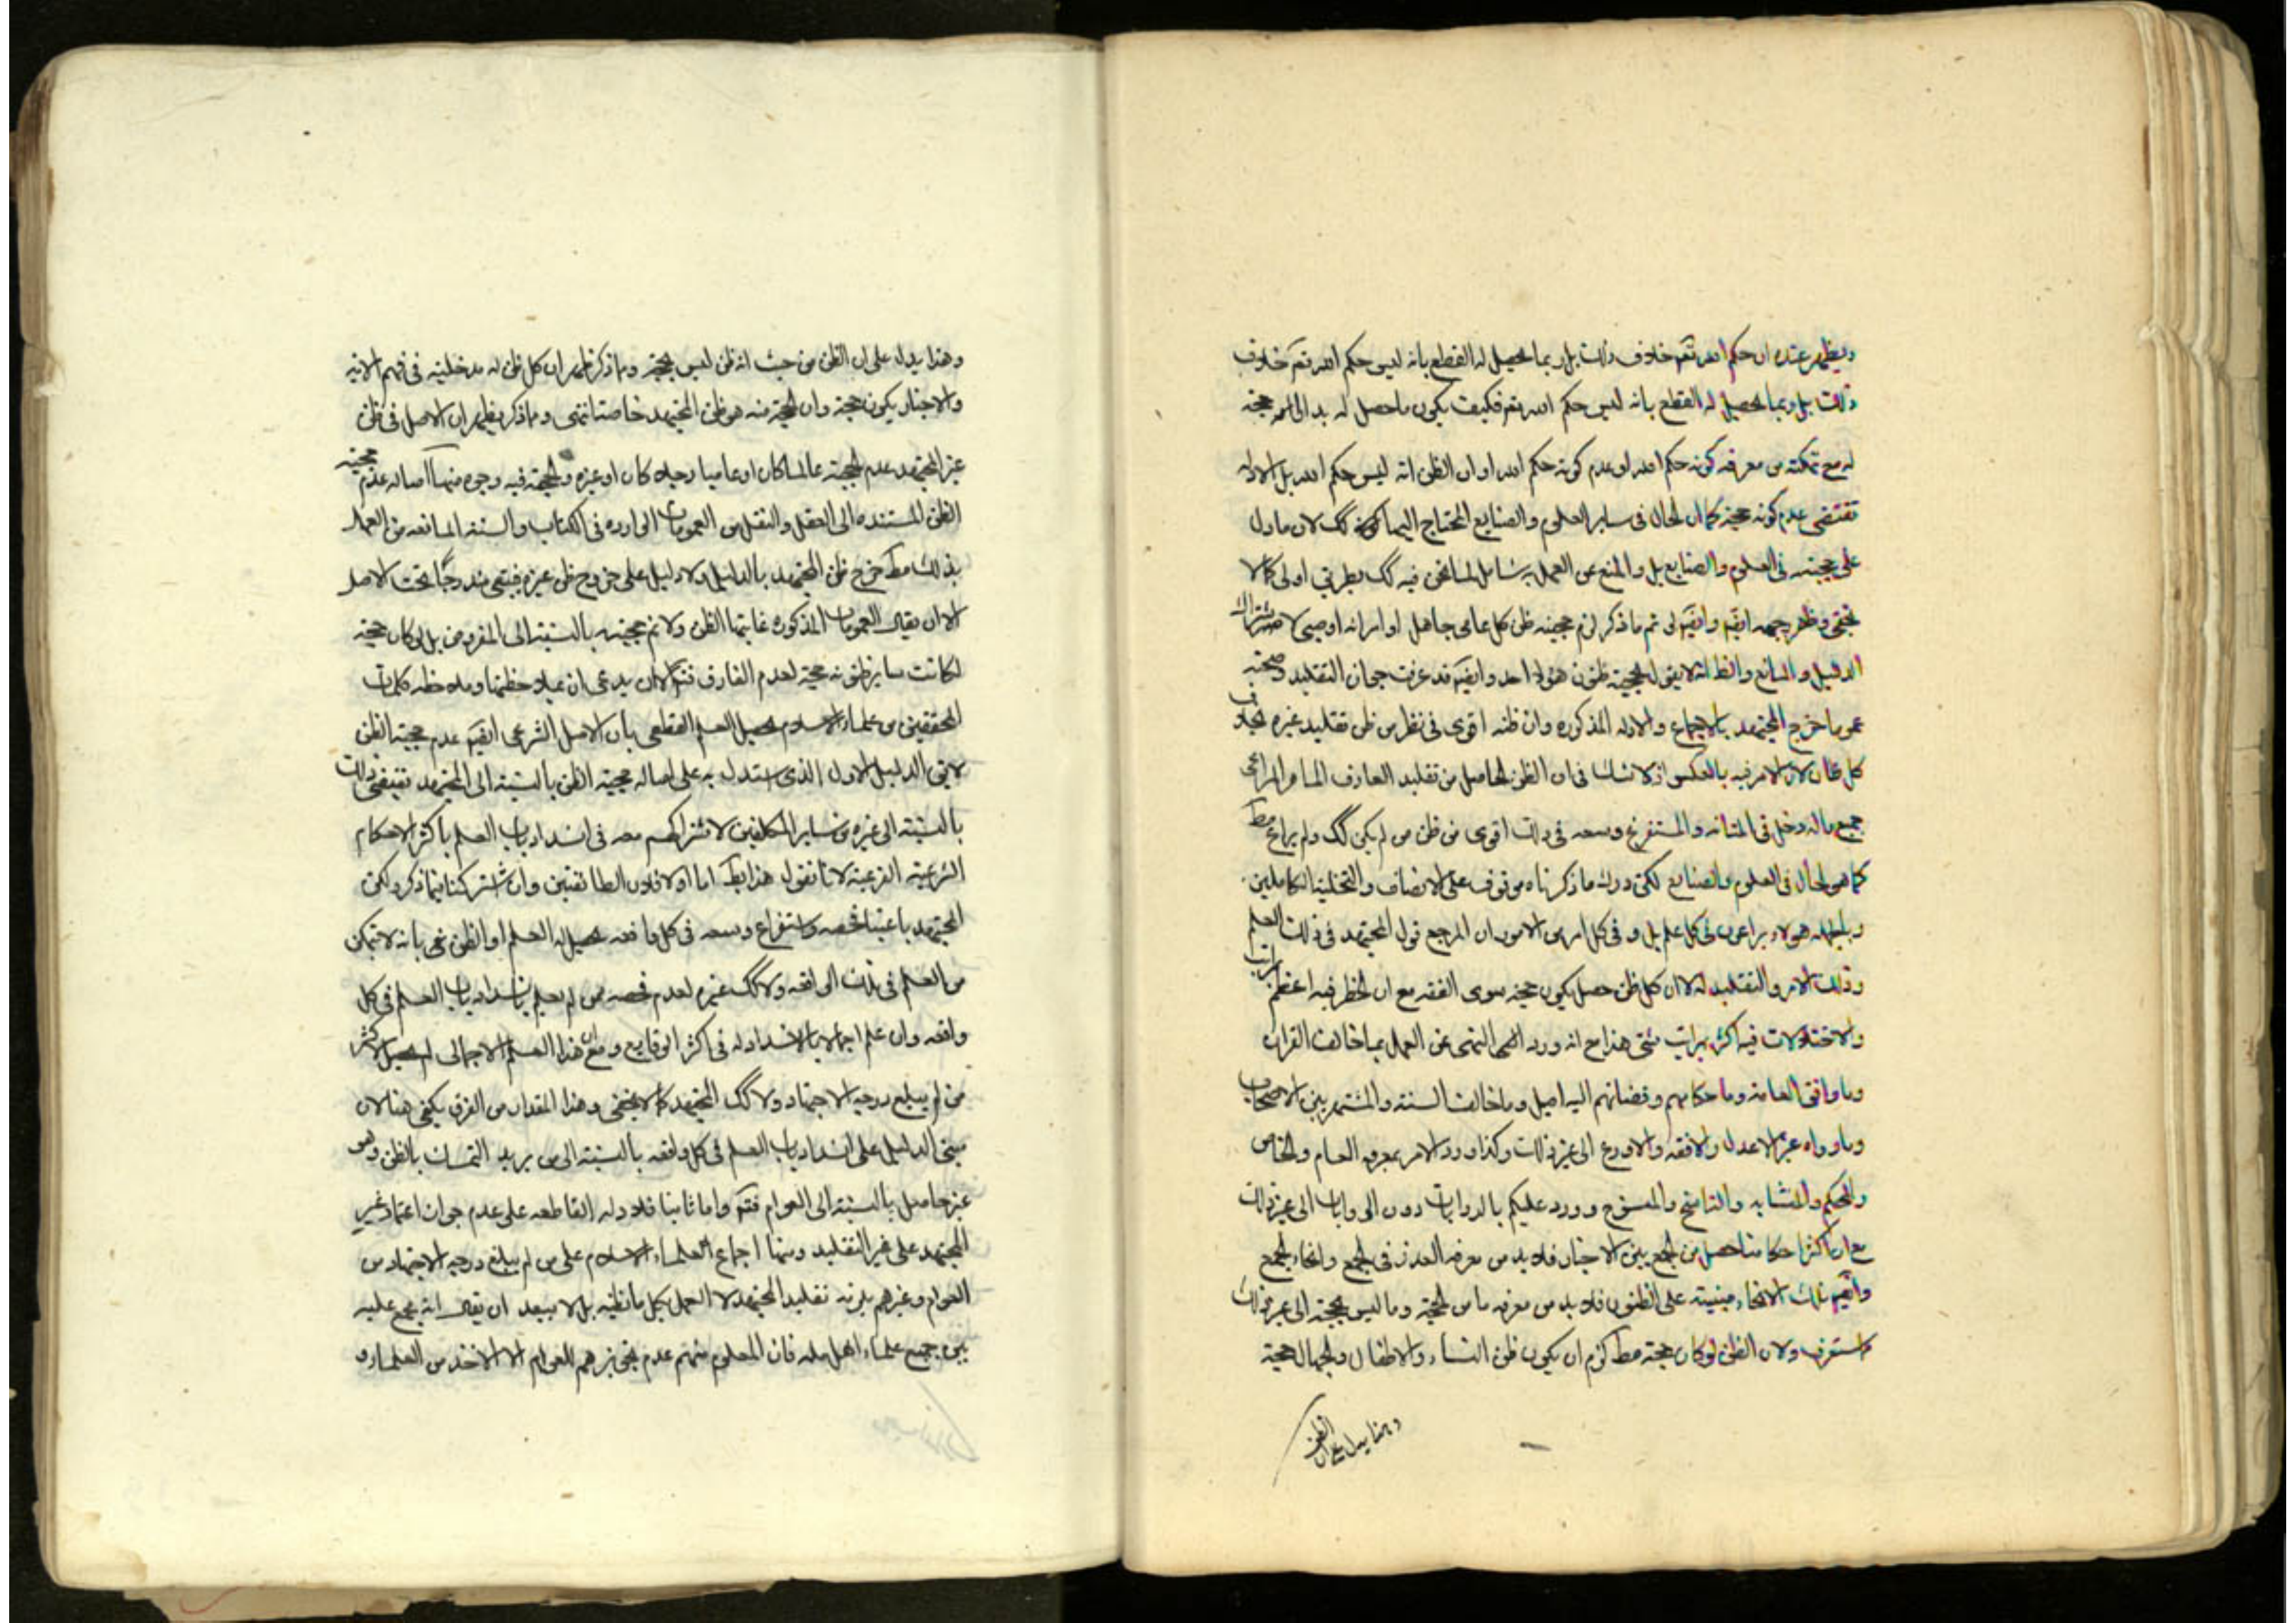 ويظهر عنده ان حكم الله تعم خلاف ذلك بل ربما يحصل له القطع بانه ليس حكم الله تعم خلاف
ذلك بل ربما يحصل له القطع بانه ليس حكم الله تعم فكيف يكون ما حصل له حجة
له مع تمكنه من معرفة كونه حكم الله او عدم كونه حكم الله او ان الظن انه ليس حكم الله بل الادلة
تقتضى عدم كونه حجة كما ان الحال فى ساير العلوم والصنايع المحتاج اليها كك لان ما دل
على حجيته فى العلوم والصنايع بل والمنع عن العمل به شامل لما نحن فيه كك بطريق اولى كما لا
يخفى وظهر وجهه ايضم وايضم لو تم ما ذكر لزم حجية ظن كل عامى جاهل او امراة او صبى لاشتراك
الدليل والمانع والظ انه لا يقول بحجية ظنون هؤلاء احد وايضم قد عرفت جواز التقليد وصحته
عموما خرج المجتهد بالاجماع والادلة المذكورة وان ظنه اقوى فى نظره من ظن تقليد غيره بخلاف
كل لان الامر فيه بالعكس اذ لا شك فى ان الظن الحاصل من تقليد العارف الماهر المراعى
جميع ماله دخل فى المتانة والمستفرغ وسعه فى ذلك اقوى من ظن من لم يكن كك ولم يراع مط
كما هو الحال فى العلوم والصنايع لكن درك ما ذكرناه موقوف على الانصاف والتخلية الكاملين
وبالجملة هؤلاء يراعون فى كل علم بل وفى كل امر من الامور ان المرجع قول المجتهد فى ذلك العلم
وذلك الامر والتقليد له لا ان كل ظن حصل يكون حجة سوى الفقه مع ان الخطر فيه اعظم
والاختلالات فيه اكثر بمراتب شتى هذا مع انه ورد النهى عن العمل بما خالف القران
وما وافق العامة وما حكامهم وقضاتهم اليه اميل وما خالف السنة والمشتهر بين الاصحاب
وما رواه غير الاعدل والافقه والاورع الى غير ذلك وكذا ورد الامر بمعرفة العام والخاص
والمحكم والمتشابه والناسخ والمنسوخ وورد عليكم بالدرايات دون الروايات الى غير ذلك
مع ان اكثر احكامنا حصل من الجمع بين الاخبار فلا بد من معرفة العذر فى الجمع وانحاء الجمع
وايضم تلك الانحاء مبنية على الظنون فلا بد من معرفة ما هو الحجة وما ليس بحجة الى غير ذلك
وستعرف ولان الظن لو كان حجة مط لزم ان يكون ظن النساء والاطفال والجهال حجة
وهذا يدل على ان الظن
وهذا يدل على ان الظن من حيث انه ظن ليس بحجة وما ذكر ظهر ان كل ظن له مدخلية فى فهم الاية
والاخبار يكون حجة وان الحجة منه هو ظن المجتهد خاصة انتهى ومما ذكر يظهر ان الاصل فى ظن
غير المجتهد عدم الحجية عالما كان او عاميا رجلا كان او غيره والحجة فيه وجوه منها اصالة عدم حجية
الظن المستنده الى العقل والنقل من العمومات الواردة فى الكتاب والسنة المانعة من العمل
بذلك مط خرج ظن المجتهد بالدليل ولا دليل على خروج ظن غيره فيبقى مندرجا تحت الاصل
الا ان يقال العمومات المذكورة غايتها الظن ولا نم حجيته بالنسبة الى المفروض بل لو كان حجة
لكانت ساير ظنونه حجة لعدم الفارق فتم الا ان يدعى ان بملاحظتها وملاحظة كلمات
المحققين من علماء الاسلام يحصل العلم القطعى بان الاصل الشرعى ايضم عدم حجية الظن
لا يق الدليل الاول الذى استدل به على اصالة حجية الظن بالنسبة الى المجتهد يقتضى ذلك
بالنسبة الى غيره من ساير المكلفين لاشتراكهم معه فى انسداد باب العلم باكثر الاحكام
الشرعية الفرعية لانا نقول هذا بط اما اولا فلان الطائفتين وان اشتركتا فيما ذكر ولكن
المجتهد باعتبار فحصه واستفراغ وسعه فى كل واقعة يحصل له العلم او الظن فى بانه لا يتمكن
من العلم فى تلك الواقعة ولا كك غيره لعدم فحصه فمن لم يعلم بانسداد باب العلم فى كل
واقعة وان علم اجمالا بالانسداد له فى اكثر الوقايع ومع ان هذا العلم الاجمالى لم يحصل لاكثر
من لم يبلغ درجة الاجتهاد ولا كك المجتهد كما لا يخفى وهذا المقدار من الفرق يكفى هنا لان
مبنى الدليل على انسداد باب العلم فى كل واقعة بالنسبة الى من يريد التمسك بالظن وليس
غير حاصل بالنسبة الى العوام فتم واما ثانيا فللادلة القاطعة على عدم جواز اعتماد غير
المجتهد على غير التقليد ومنها اجماع العلماء الاسلام على من لم يبلغ درجة الاجتهاد من
العوام وغيرهم يلزمه تقليد المجتهد لا العمل بكل ما ظنه بل لا يبعد ان يقال انه مجمع عليه
بين جميع علماء اهل ملة فان المعلوم منهم عدم تجويزهم للعوام الا الاخذ من العلماء و